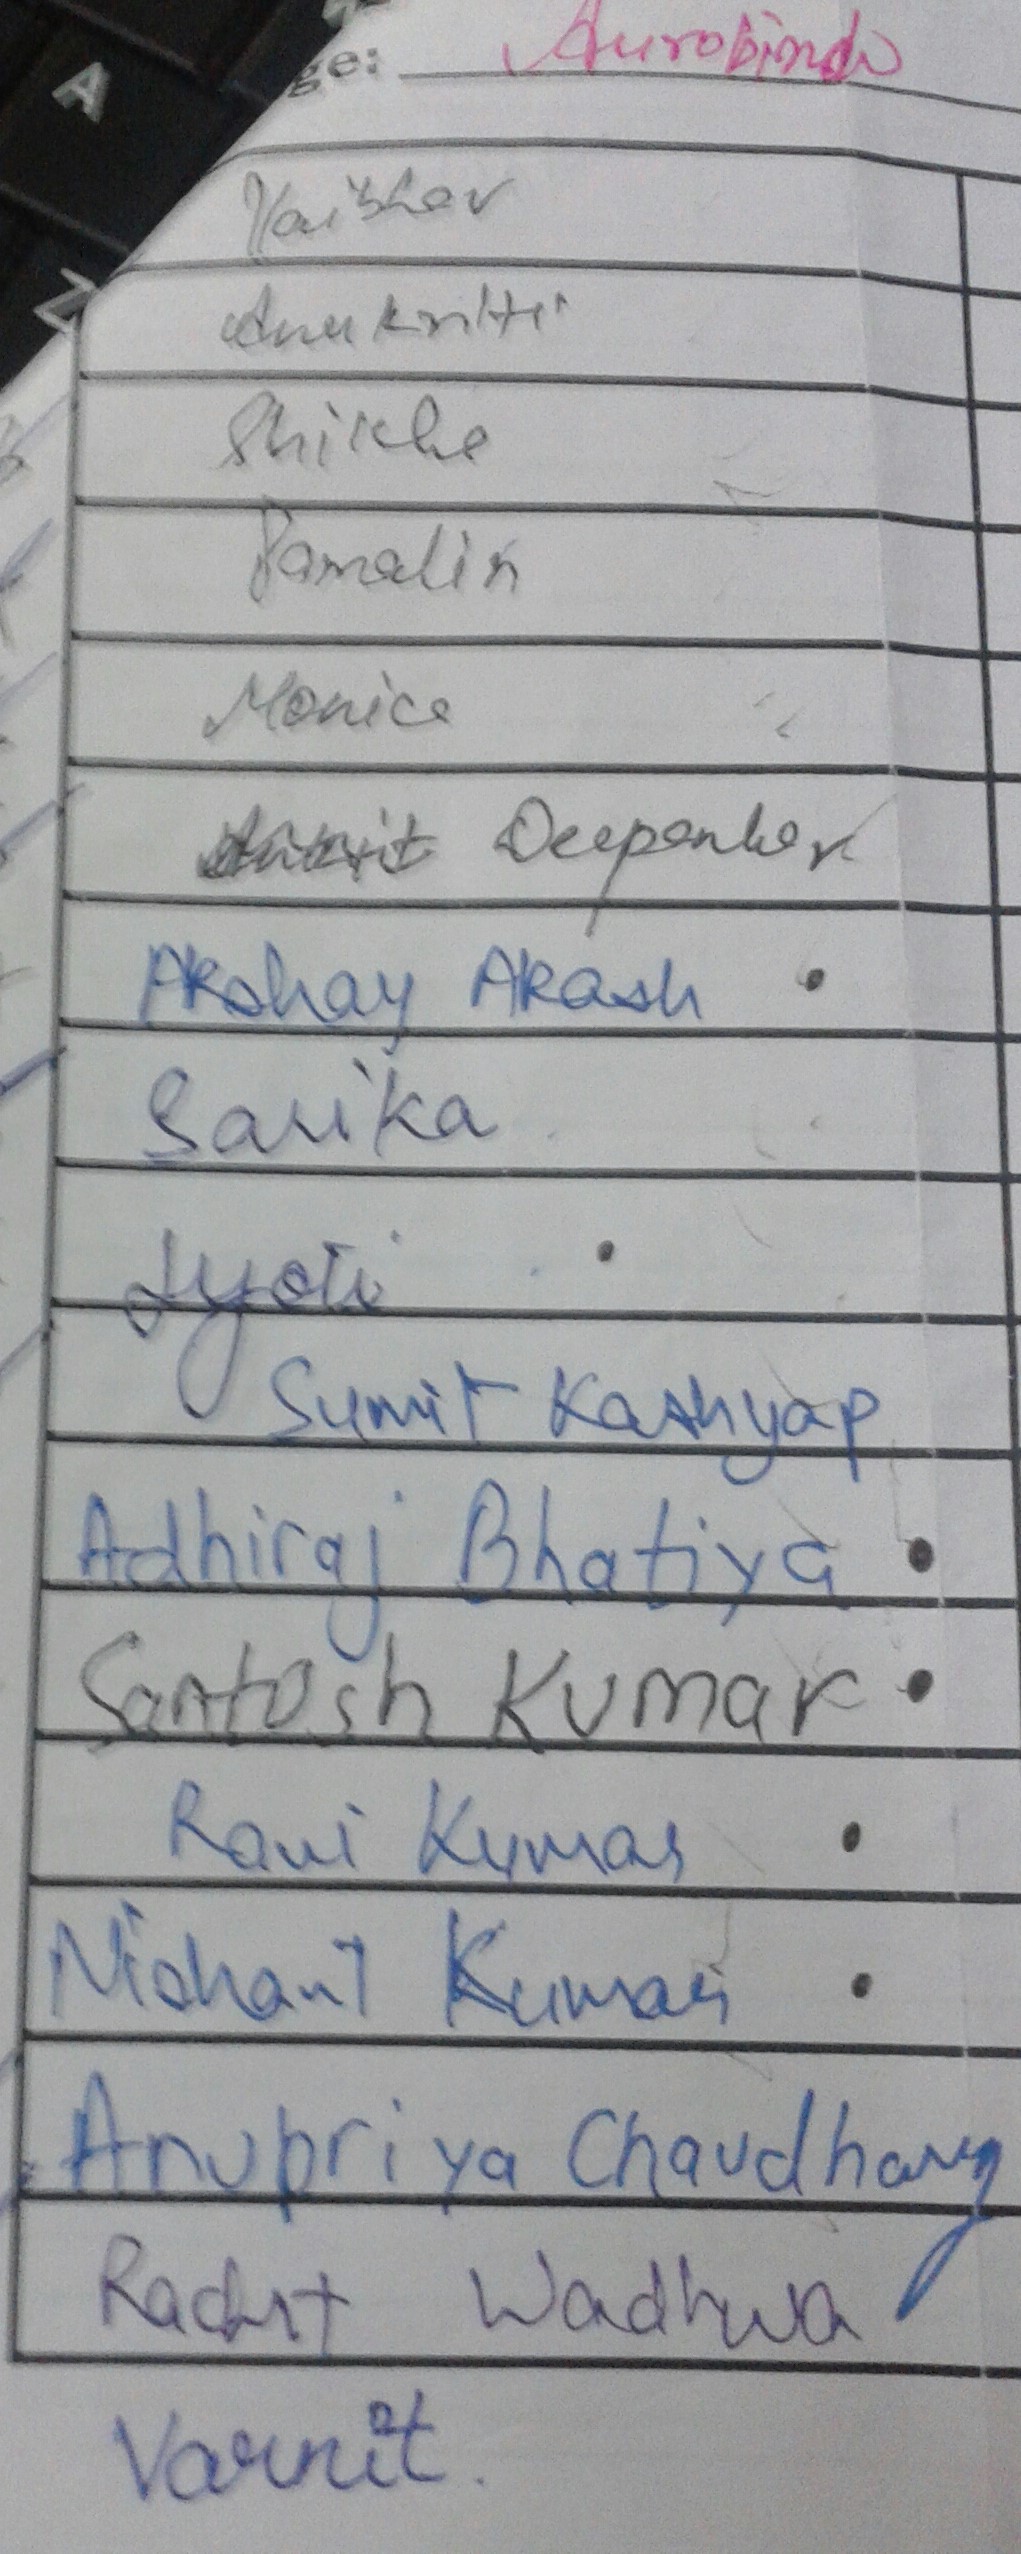 ge: Aurobindo
Vaibhav
Anukritti
Shikha
Pamalin
Monica
Deepanker
Akshay Akash
Sarika
Jyoti
Sumit Kashyap
Adhiraj Bhatiya
Santosh Kumar
Ravi Kumar
Nishant Kumar
Anupriya Chaudhary
Rachit Wadhwa
Varnit.